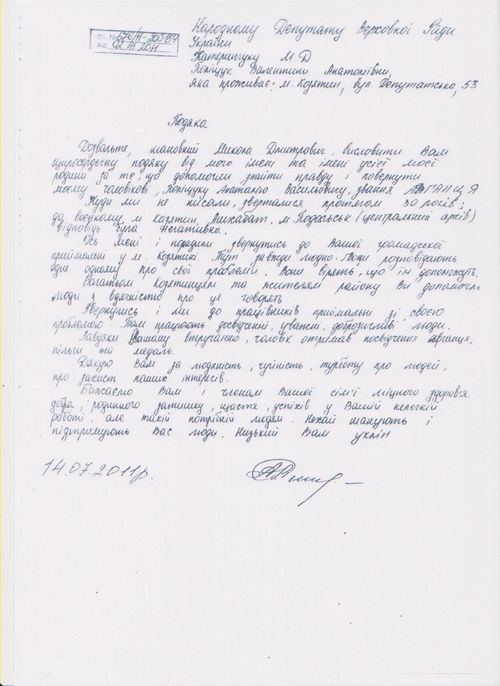 Народному Депутату Верховної Ради
України
Катеринчуку М Д
Поліщук Валентини Анатоліївни,
яка проживає: м. Корятин, вул Депутатська, 53
Подяка
Дозвольте, шановний Микола Дмитрович. висловити Вам
щиросердечну подяку від мого імені та імені усієї моєї
родини за те, що допомогли знайти правду і повернути
моєму чоловікові, Поліщуку Анатолію Васильовичу, звання
Куди ми не писали, звертались протягом 30 років;
до воєнкому, м корятин, Ашхабат, м. Подольськ (центральний архів)
відповідь була негативна.
Ось мені і порадили звернутись до Вашої громадської
приймальні у м. Корятині. Тут завжди людно. Люди розповідають
одне одному про свої проблеми. Вони вірять, що їм допоможуть.
Багатьом Корятинцям та жителям району Ви допомогли
люди з вдячністю про це говорять
Звернулись і ми до працівників приймальні зі своєю
проблемою. Там працюють досвідчені, уважні, доброзичливі люди.
Завдяки Вашому втручанню, чоловік отримав посвідчення
пільги та медаль.
Дякую Вам за людяність, чуйність, турботу про людей,
про захист наших інтересів.
Бажаємо Вам і членам Вашої сім'ї міцного здоров'я
добра, родинного затишку, щастя, успіхів у Вашій нелегкій
роботі, але такій потрібній людям. Нехай шанують і
підтримують Вас люди. Низький Вам уклін
14.07.2011р.